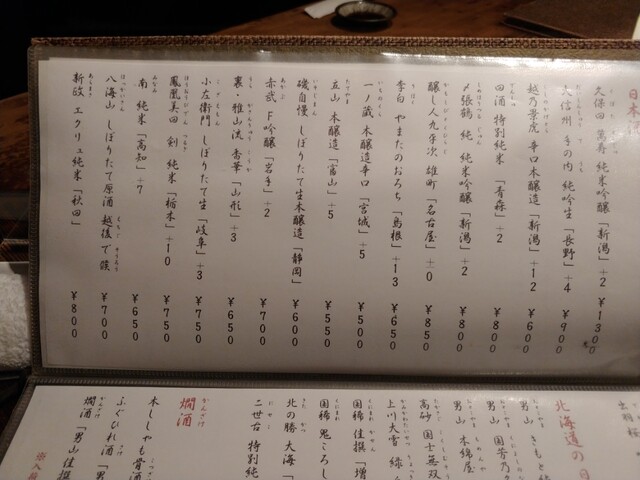 日本
久保田 萬寿 純米吟醸「新潟」+2 ¥1300
大信州 手の内 純吟生「長野」+4 ¥900
越乃景虎 辛口本醸造「新潟」+12 ¥600
田酒 特別純米 「青森」+2 ¥800
〆張鶴 純 純米吟醸「新潟」+2 ¥800
醸し人九平次 雄町「名古屋」±0 ¥850
李白 やまたのおろち「島根」+13 ¥650
一ノ蔵 本醸造辛口「宮城」+5 ¥500
立山 本醸造「富山」+5 ¥550
磯自慢 しぼりたて生本醸造「静岡」 ¥600
赤武 F吟醸「岩手」+2 ¥700
裏・雅山流 香華「山形」+3 ¥650
小左衛門 しぼりたて生「岐阜」+3 ¥750
鳳凰美田 剣 純米「栃木」+10 ¥750
南 純米「高知」+7 ¥650
八海山 しぼりたて原酒 越後で候 ¥700
新政 エクリュ純米「秋田」 ¥800
北海道の日
男山 きもと
男山 国芳乃
男山 木綿屋
高砂 国士無双
上川大雪 緑
国稀 佳撰「増
国稀 鬼ころし
北の勝 大海「
二世古 特別純
燗酒
本ししゃも骨酒
ふぐひれ酒「男
燗酒「男山佳撰